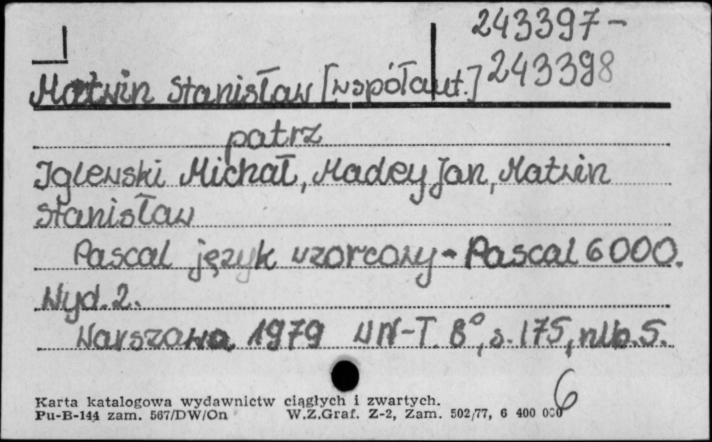 243397-
243398
Matwin Stanisław [współaut.]
patrz
Iglewski Michał, Madey Jan, Matwin
Stanisław
Pascal język wzorcowy - Pascal 6000.
Wyd. 2.
Warszawa 1979 WN-T. 8°, s. 175, nlb. 5.
6
Karta katalogowa wydawnictw ciągłych i zwartych.
Pu-B-144 zam. 567/DW/On W.Z.Graf. Z-2, Zam. 502/77, 6 400 000